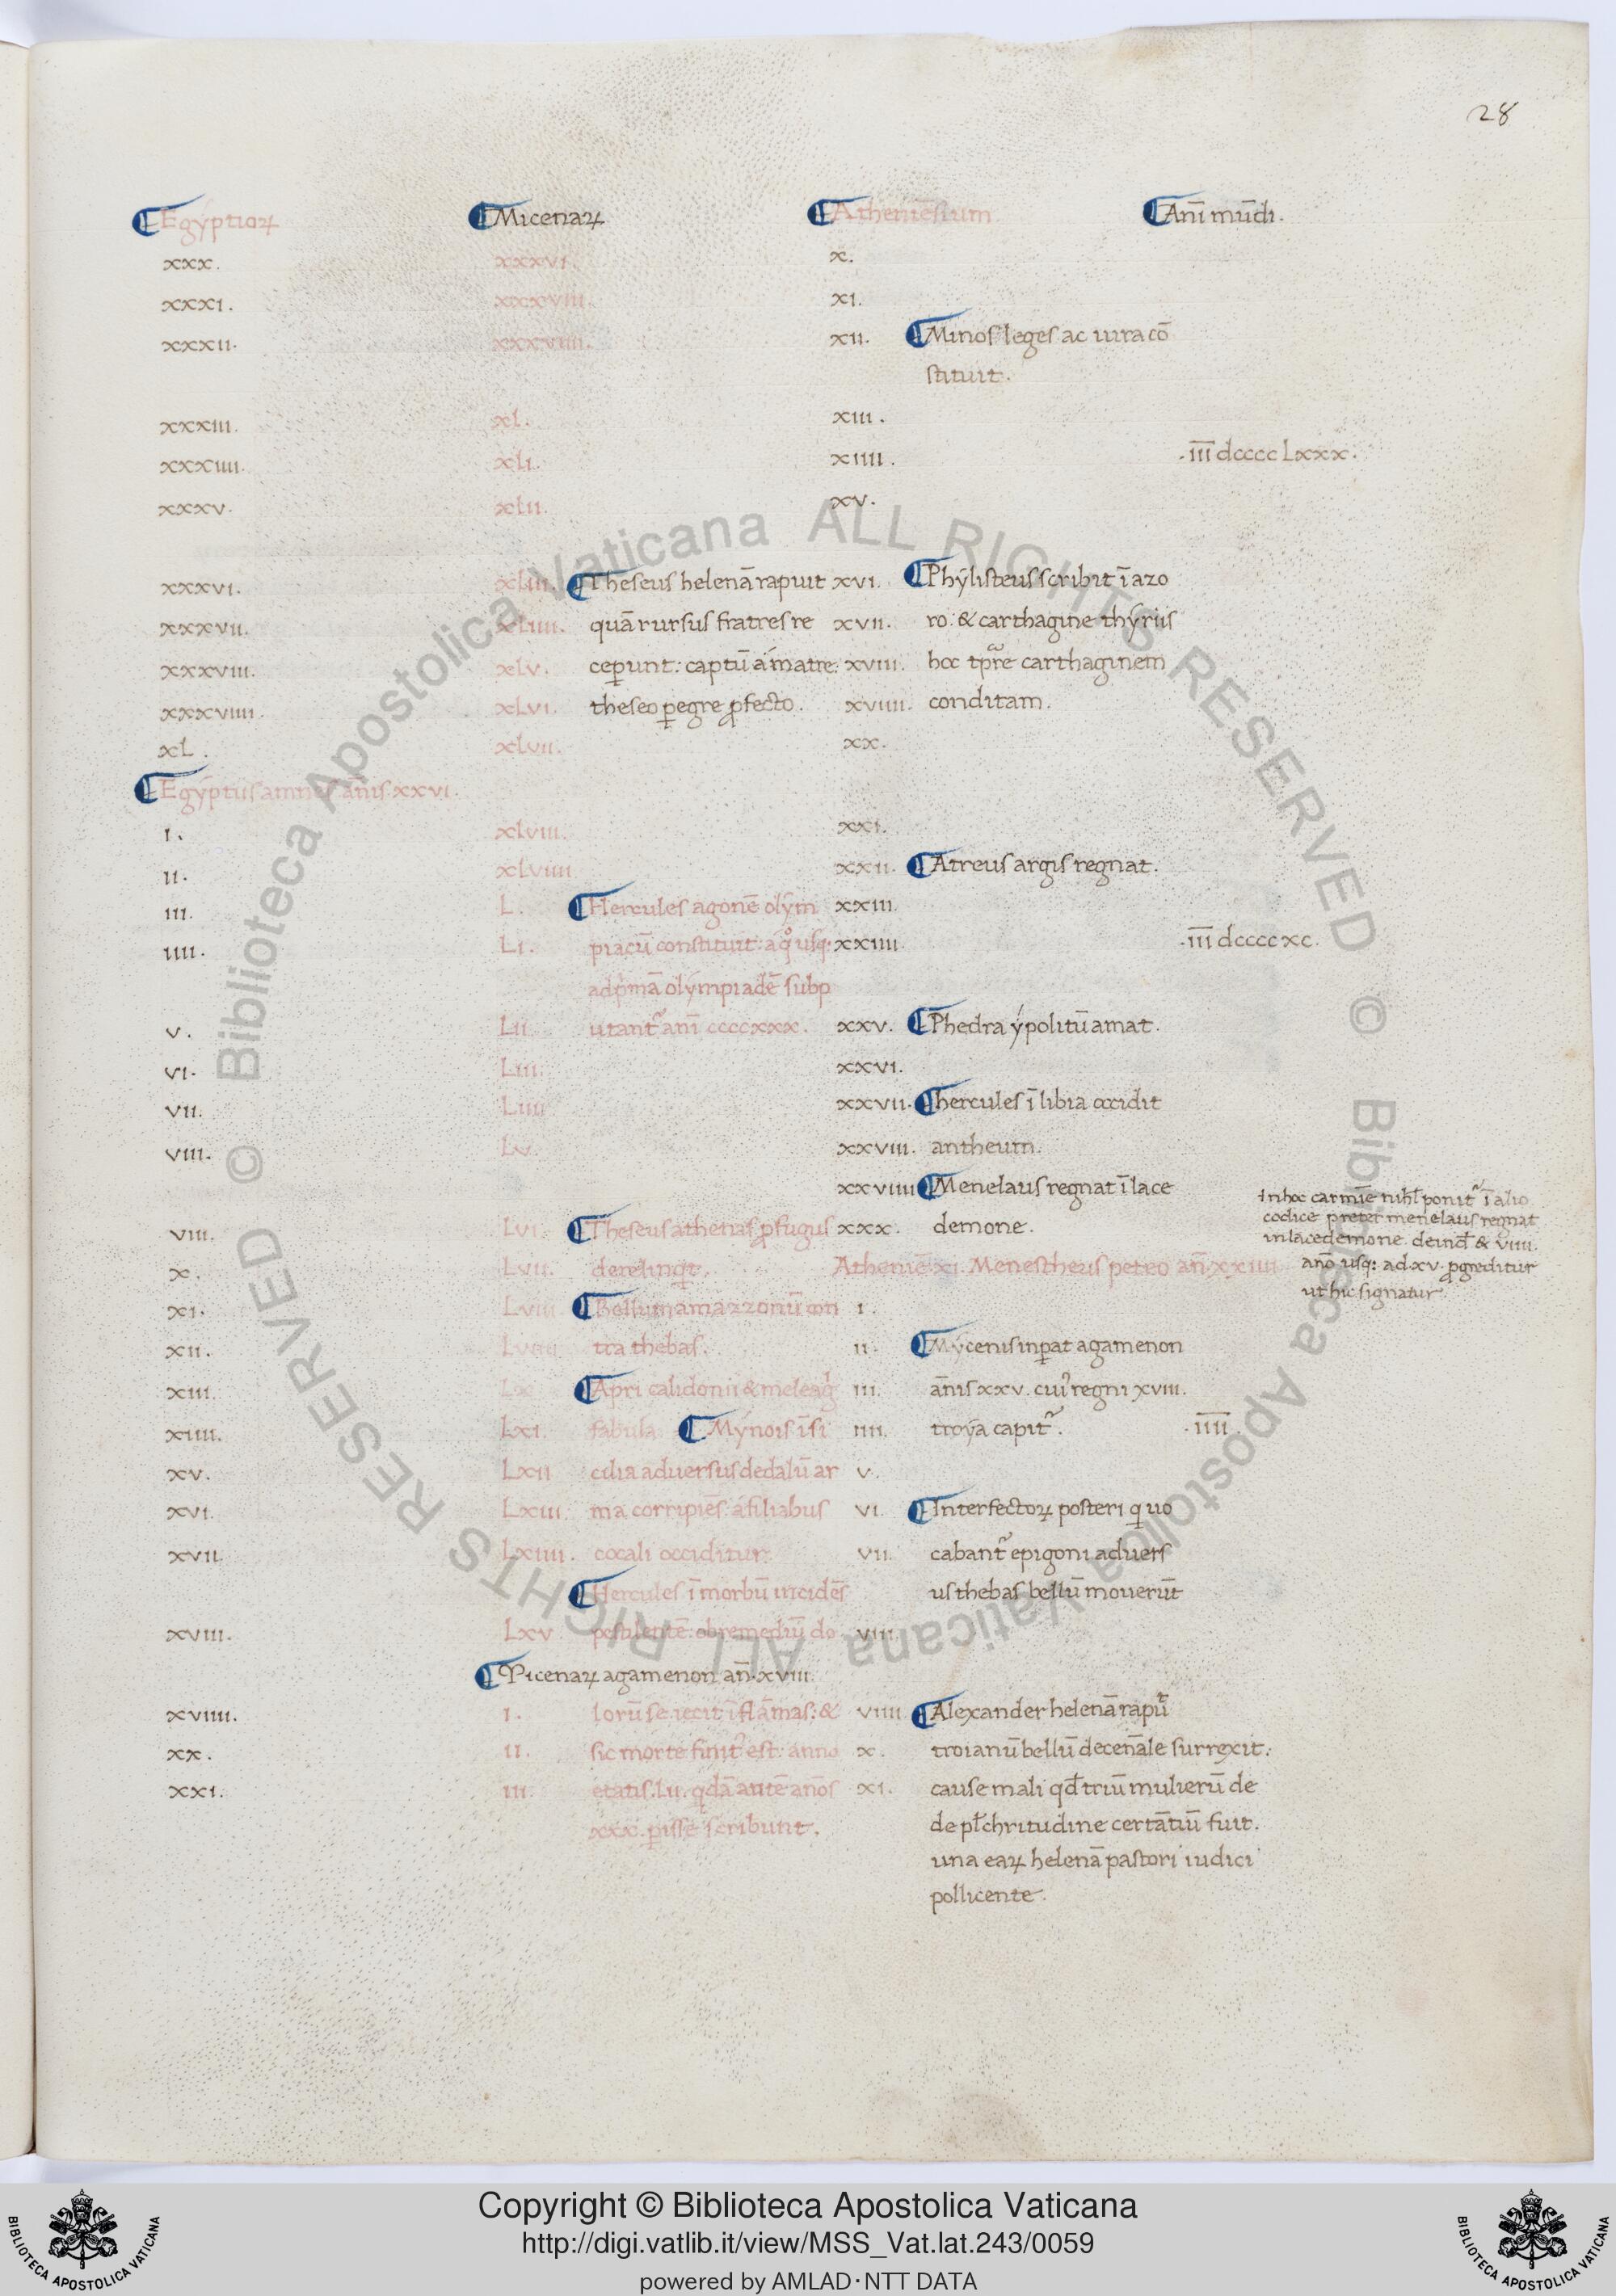 28
Egyptioꝝ Micenaꝝ Atheniēsium Ani᷎ mūdi.
xxx. xxxvi. x.
xxxi. xxxviii. xi.
xxxii. xxxviiii. xii. Minos leges ac iura cō
stituit.
xxxiii. xl. xiii.
xxxiiii. xli. xiiii. .iii̅ dcccc Lxxx.
xxxv. xlii. xv.
xxxvi. xliii. Theseus helenā rapuit xvi. Phylisteus scribit ī azo
xxxvii. xliiii. quā rursus fratres re xvii. ro: & carthagine thyriis
xxxviii. xlv. ceꝑunt: captū a matre: xviii. hoc tꝑre carthaginem
xxxviiii. xlvi. theseo ꝑegre ꝓfecto. xviiii. conditam.
xL. xlvii. xx.
Egyptus ānis xxvi.
i. xlviii. xxi.
ii. xlviiii. xxii. Atreus argis regnat.
iii. L. Hercules agonē olym xxiii.
iiii. Li. piacū constituit: a qͦ usq: xxiiii. .iii̅ dcccc xc.
ad pͥmā olympiadē subp
v. Lii. utant᷑ ani᷎ ccccxxx. xxv. Phedra ypolitū amat.
vi. Liii. xxvi.
vii. Liiii. xxvii. hercules ī libia occidit
viii. Lv. xxviii. antheum.
xxviiii Menelaus regnat ī lace
viiii. Lvi. Theseus athenas ꝓfugus xxx. demone.
x. Lvii. derelinqͥt. Atheniē. xi. Menestheus peteo an̄. xxiii
In hoc carmīe nihl̄ ponit᷑ ī alio
codice preter menelaus regnat
in lacedemone. deind̄ & viiii.
anō usq: ad xv. ꝓgreditur
ut hic signatur.
xi. Lviii Bellum amazzonū con i.
xii. tra thebas. ii. Mycenis inꝑat agamenon
xiii. Lx Apri calidonii & meleagͥ iii. ānis xxv. cuiꝰ regni xviii.
xiiii. Lxi. fabula. Mynois ī si iiii. troya capit᷑. .iiii̅.
xv. Lxii cilia adversus dedalū ar v.
xvi. Lxiii. ma corripiēs a filiabus vi. Interfectoꝝ posteri q uo
xvii. Lxiiii. cocali occiditur. vii. cabant᷑ epigoni advers
Hercules ī morbū incidēs us thebas bellū moverūt
xviii. Lxv pestilentē: ob remediū do viii.
Micenaꝝ agamenon an̄. xviii.
xviiii. i. lorū se iecit ī flāmas: & viiii Alexander helenā rapūt
xx. ii. sic morte finitꝰ est: anno x. troianū bellū decenāle surrexit:
xxi. iii. etatis. Lii. qͥdā autē anōs xi. cause mali qd̄ triū mulierū de
xxx. ꝑisse scribunt. de pl̄chritudine certātiū fuit.
una eaꝝ helenā pastori iudici
pollicente.
Copyright © Biblioteca Apostolica Vaticana
http://digi.vatlib.it/view/MSS_Vat.lat.243/0059
powered by AMLAD·NTT DATA
BIBLIOTECA APOSTOLICA VATICANA
BIBLIOTECA APOSTOLICA VATICANA
© Biblioteca Apostolica Vaticana ALL RIGHTS RESERVED
© Biblioteca Apostolica Vaticana ALL RIGHTS RESERVED